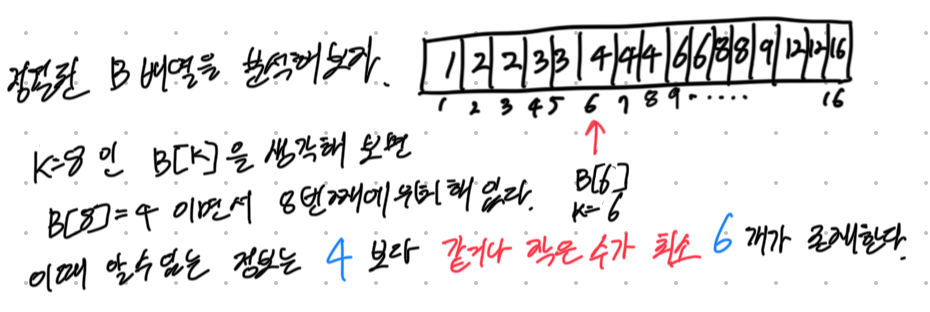 정렬한 B 배열을 분석해보자.
1 2 2 3 3 4 4 4 6 6 8 8 9 12 12 16
1 2 3 4 5 6 7 8 9 ...... 16
K=8 인 B[K]을 생각해 보면
B[8]=4 이면서 8번째에 위치해 있다.
B[6]
K=6
이때 알수있는 정보는 4 보다 같거나 작은 수가 최소 6 개가 존재한다.